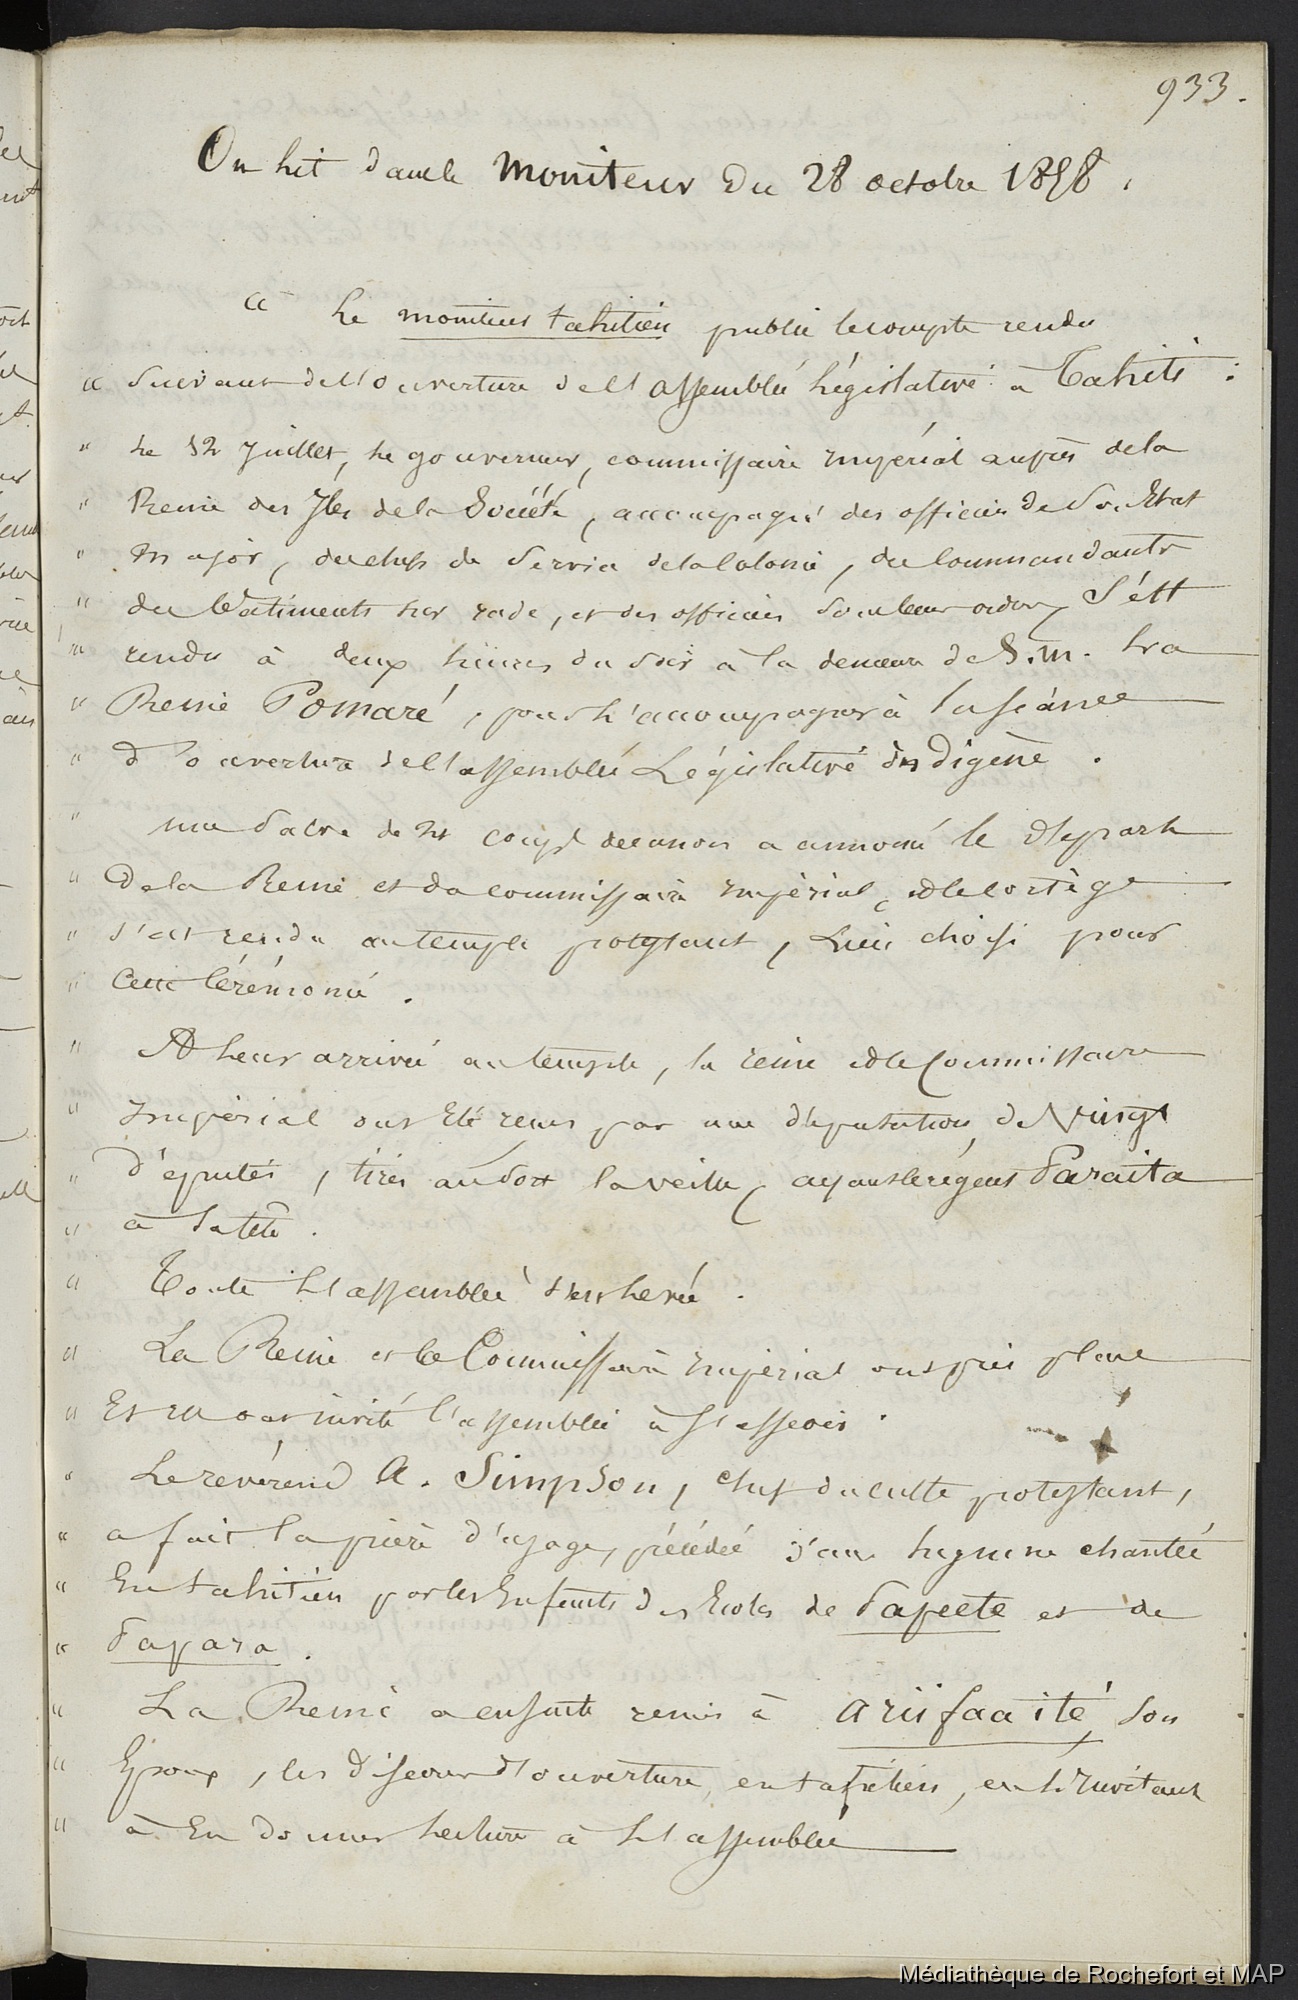 933.
On lit dans le Moniteur du 28 octobre 1858.
" Le moniteur tahitien publie le compte rendu
" Suivant de l'ouverture de l'assemblée Législative à Tahiti :
" Le 12 Juillet, le gouverneur, commissaire impérial auprès de la
" Reine des Iles de la Société, accompagné des officiers de Son Etat
" Major, des chefs de Service de la Colonie, des Commandants
" des Bâtiments sur rade, et des officiers sous leurs ordres, S'est
" rendu à deux heures du soir à la demeure de S.M. La
" Reine Pomaré, pour l'accompagner à la séance
" d'ouverture de l'assemblée Législative indigène.
" une Salve de 21 coups de canon a annoncé le départ
" De la Reine et du commissaire impérial, et le cortège
" s'est rendu au temple protestant, Lieu choisi pour
" Cette Cérémonie.
" A leur arrivée au temple, la reine et le Commissaire
" Impérial ont été reçus par une députation de Vingt
" députés, tirés au Sort la veille, ayant le régent Paraita
" à la tête.
" Toute l'assemblée s'est levée.
" La Reine et le Commissaire impérial ont pris place
" Et ont invité l'assemblée à s'asseoir.
" Le révérend A. Simpson, chef du culte protestant,
" a fait la prière d'usage, précédée d'un hymne chantée
" En tahitien par les Enfants des Ecoles de Papeete et de
" Papara.
" La Reine a ensuite remis à Ariifaaité, Son
" Epoux, les discours d'ouverture, en tahitien, en l'invitant
" à En donner lecture à l'assemblée
Médiathèque de Rochefort et MAP